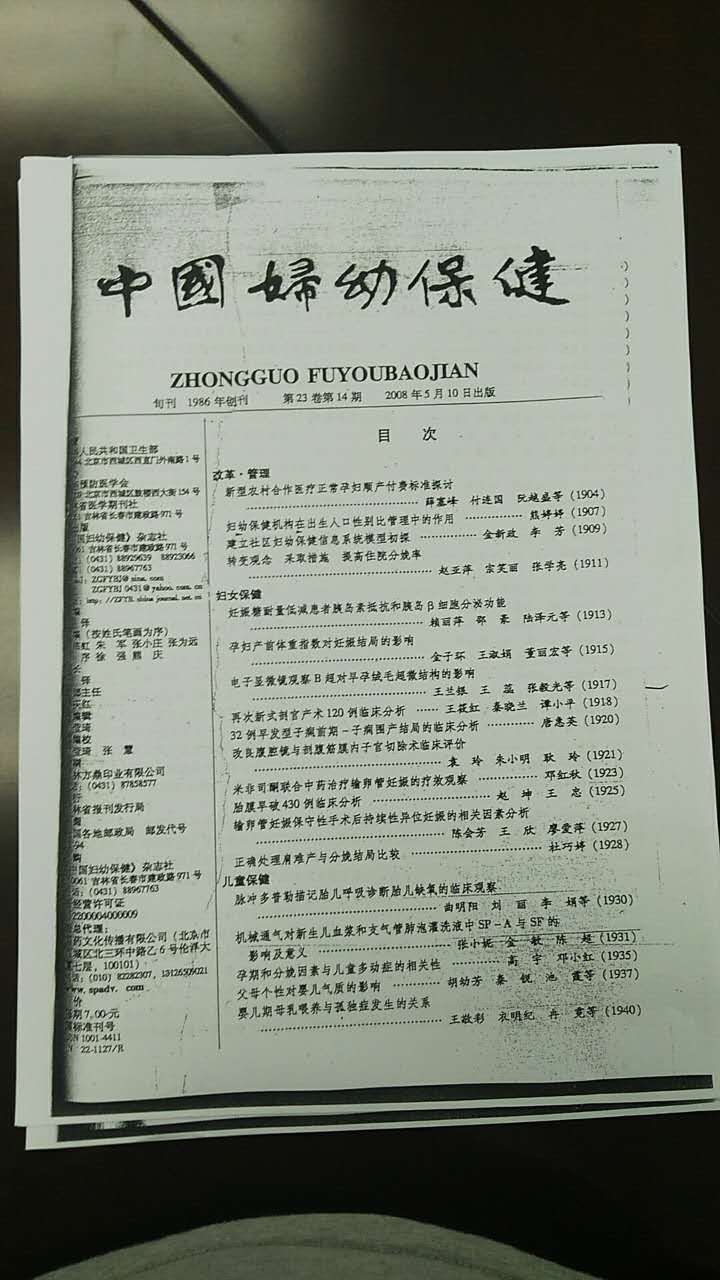 中國婦幼保健
ZHONGGUO FUYOUBAOJIAN
旬刊 1986年创刊 第23卷第14期 2008年5月10日出版
人民共和国卫生部
北京市西城区西直门外南路1号
预防医学会
北京市西城区鼓楼西大街154号
省医学期刊社
吉林省长春市建政路971号
出版
国妇幼保健》杂志社
061 吉林省长春市建政路971号
(0431) 88929639 88923066
(0431) 88967763
ZGFYBJ@sina.com
ZGFYBJ0431@yahoo.com.cn
http://ZFYB.chinajournal.net.cn
译
(按姓氏笔画为序)
朱 军 张小庄 张为远
序 徐 强 熊 庆
长
译
部主任
编辑
编校
琦 张 慧
林方鼎印业有限公司
(0431) 87858577
行
林省报刊发行局
国各地邮政局 邮发代号
-94
中国妇幼保健》杂志社
0061 吉林省长春市建政路971号
(0431) 88967763
经营许可证
2200004000009
总代理:
药文化传播有限公司(北京市
城区北三环中路乙6号伦洋大
七层, 100101)
(010) 82282307, 13126509021
www.spadv.com
价
每期7.00元
国标准刊号
N 1001-4411
N 22-1127/R
目 次
改革·管理
新型农村合作医疗正常孕妇顺产付费标准探讨
薛塞峰 付连国 阮越盛等 (1904)
妇幼保健机构在出生人口性别比管理中的作用 熊婷婷 (1907)
建立社区妇幼保健信息系统模型初探 金新政 李 芳 (1909)
转变观念 采取措施 提高住院分娩率
赵亚萍 宗笑丽 张学亮 (1911)
妇女保健
妊娠糖耐量低减患者胰岛素抵抗和胰岛β细胞分泌功能
赖丽萍 邵 豪 陆泽元等 (1913)
孕妇产前体重指数对妊娠结局的影响
金子环 王淑娟 董丽宏等 (1915)
电子显微镜观察B超对早孕绒毛超微结构的影响
王兰银 王 蕊 张毅光等 (1917)
再次新式剖宫产术120例临床分析 王筱红 秦晓兰 谭小平 (1918)
32例早发型子痫前期-子痫围产结局的临床分析 唐惠英 (1920)
改良腹腔镜与剖腹筋膜内子宫切除术临床评价
袁 玲 朱小明 耿 玲 (1921)
米非司酮联合中药治疗输卵管妊娠的疗效观察 邓红秋 (1923)
胎膜早破430例临床分析 赵 坤 王 忠 (1925)
输卵管妊娠保守性手术后持续性异位妊娠的相关因素分析
陈会芳 王 欣 廖爱萍 (1927)
正确处理肩难产与分娩结局比较 杜巧婷 (1928)
儿童保健
脉冲多普勒描记胎儿呼吸诊断胎儿缺氧的临床观察
曲明阳 刘 丽 李 娟等 (1930)
机械通气对新生儿血浆和支气管肺泡灌洗液中SP-A与SF的
影响及意义 张小妮 金 敏 陈 超 (1931)
孕期和分娩因素与儿童多动症的相关性 高 宇 邓小红 (1935)
父母个性对婴儿气质的影响 胡幼芳 秦 锐 池 霞等 (1937)
婴儿期母乳喂养与孤独症发生的关系
王敬彩 衣明纪 冉 霓等 (1940)